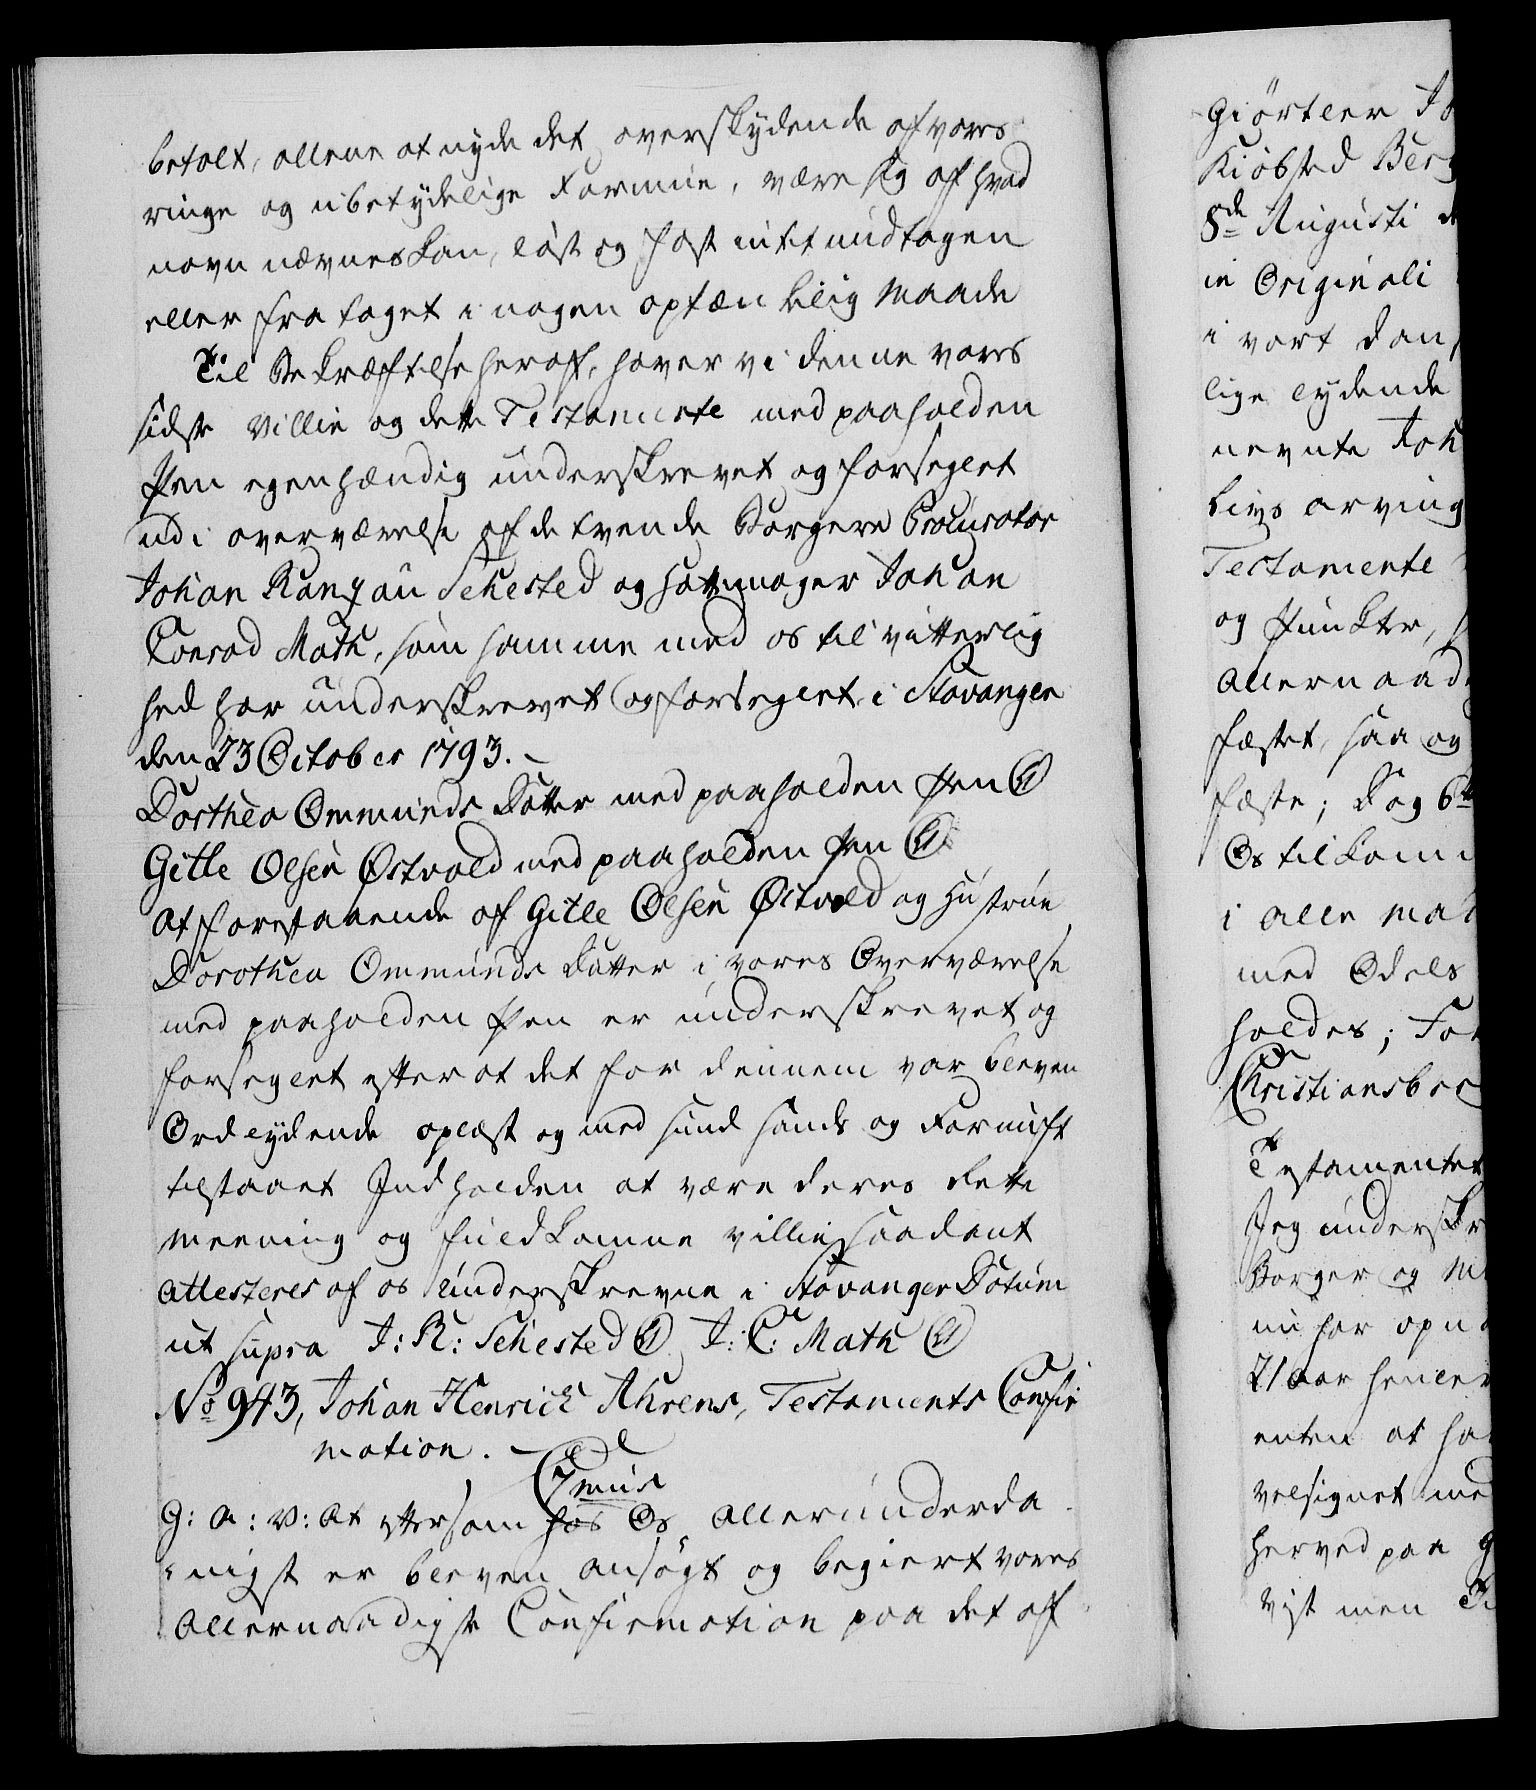 betalt, allene at nyde det overskydende af vores
ringe og ubetydelige Formue, være sig af hvad
navn nævnes kan, løst og fast intet undtagen
eller fra taget i nogen optænkelig Maade
Til Bekræftelse heraf, haver vi denne vores
sidste Villie og dette Testamente med paaholden
Pen egenhændig underskrevet og forseglet
udi overværelse af de tvende Borgere Procurator
Johan Ranzau Sehested og Hattemager Johan
Conrad Math, som samme med os til vitterlig
hed har underskrevet og forseglet. i Stavanger
den 23 October 1793. –
Dorthea Ommunds Datter med paaholden Pen
Gitle Olsen Østvold med paaholden Pen
At forestaaende af Gitle Olsen Østvold og Hustrue
Dorothea Ommunds Datter i vores Overværelse
med paaholden Pen er underskrevet og
forseglet efter at det for dennem var bleven
Ordlydende oplæst og med sund Sands og Fornuft
tilstaaet Indholden at være deres rette
Meening og fuldkomne villie, saadant
attesteres af os underskrevne i Stavanger Datum
ut supra J: R: Sehested J: C: Math
No 943, Johan Henrich Ahrens, Testaments Confir
mation. –
G: A: V: At eftersom hos Os allerunderda
nigst er bleven ansøgt og begiert vores
Allernaadigste Confirmation paa det af
Giørtler Jo
Kiøbsted Berg
8de Augusti
in Originali
i vort Dan
lige lydende
nevnte Joh
livs arving
Testamente
og Punkter,
Allernaad
fæstet, saa og
fæste; Dog
Os tilkom
i alle Maa
med Odels
holdes; For
Christiansbor
Testamentet
Jeg underskr
Borger og M
nu har opn
71 aar henle
enten at ha
velsignet med
herved paa
Vist men